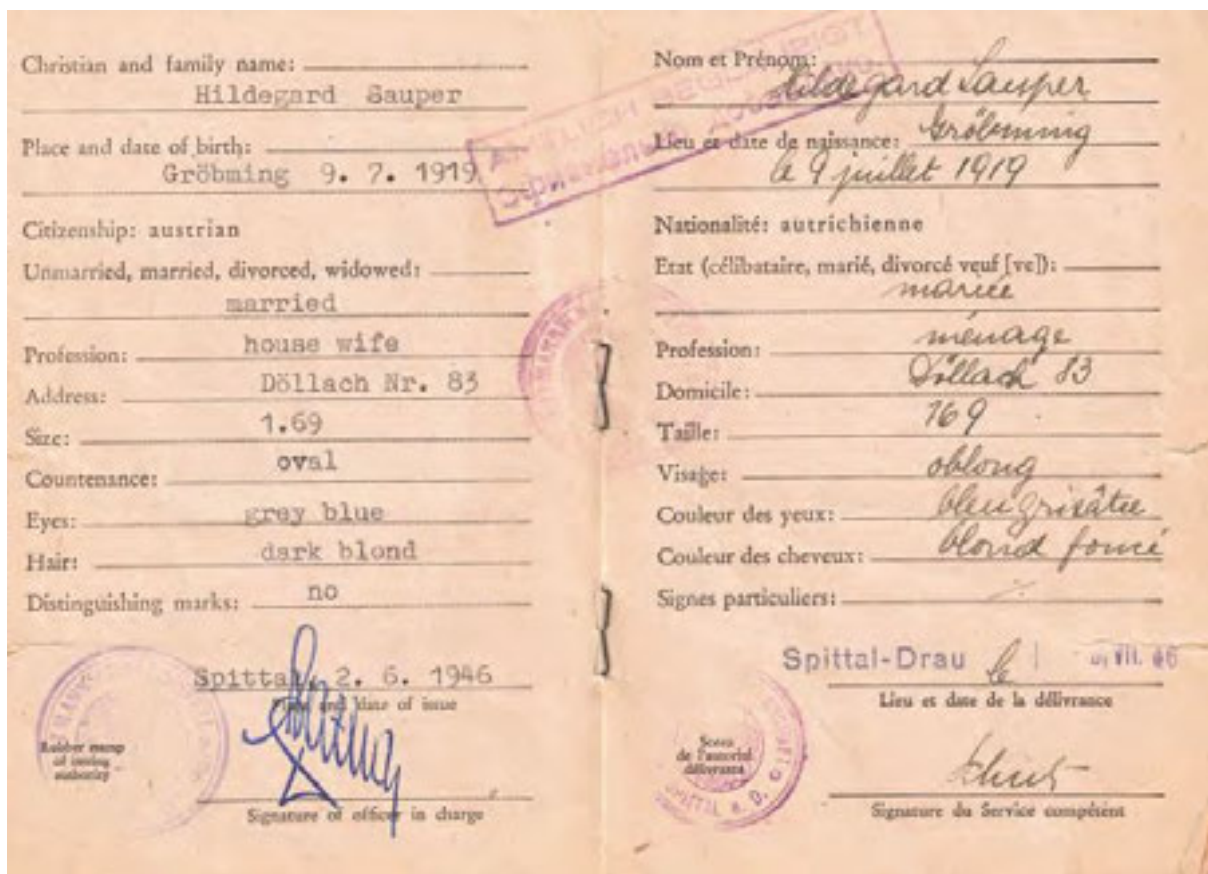 Christian and family name:
Hildegard Sauper
Place and date of birth:
Gröbming 9. 7. 1919
Citizenship: austrian
Unmarried, married, divorced, widowed:
married
Profession: house wife
Address: Döllach Nr. 83
Size: 1.69
Countenance: oval
Eyes: grey blue
Hair: dark blond
Distinguishing marks: no
Spittal, 2. 6. 1946
Place and date of issue
Rubber stamp
of issuing
authority
Signature of officer in charge
Nom et Prénom:
Hildegard Sauper
Lieu et date de naissance: Gröbming
le 9 juillet 1919
Nationalité: autrichienne
Etat (célibataire, marié, divorcé veuf [ve]):
mariée
Profession: ménage
Domicile: Döllach 83
Taille: 169
Visage: oblong
Couleur des yeux: bleu grisâtre
Couleur des cheveux: blond foncé
Signes particuliers:
Spittal-Drau le VII. 46
Lieu et date de la délivrance
Sceau
de l'autorité
délivrante
SPITTAL a. D.
Signature du Service compétent